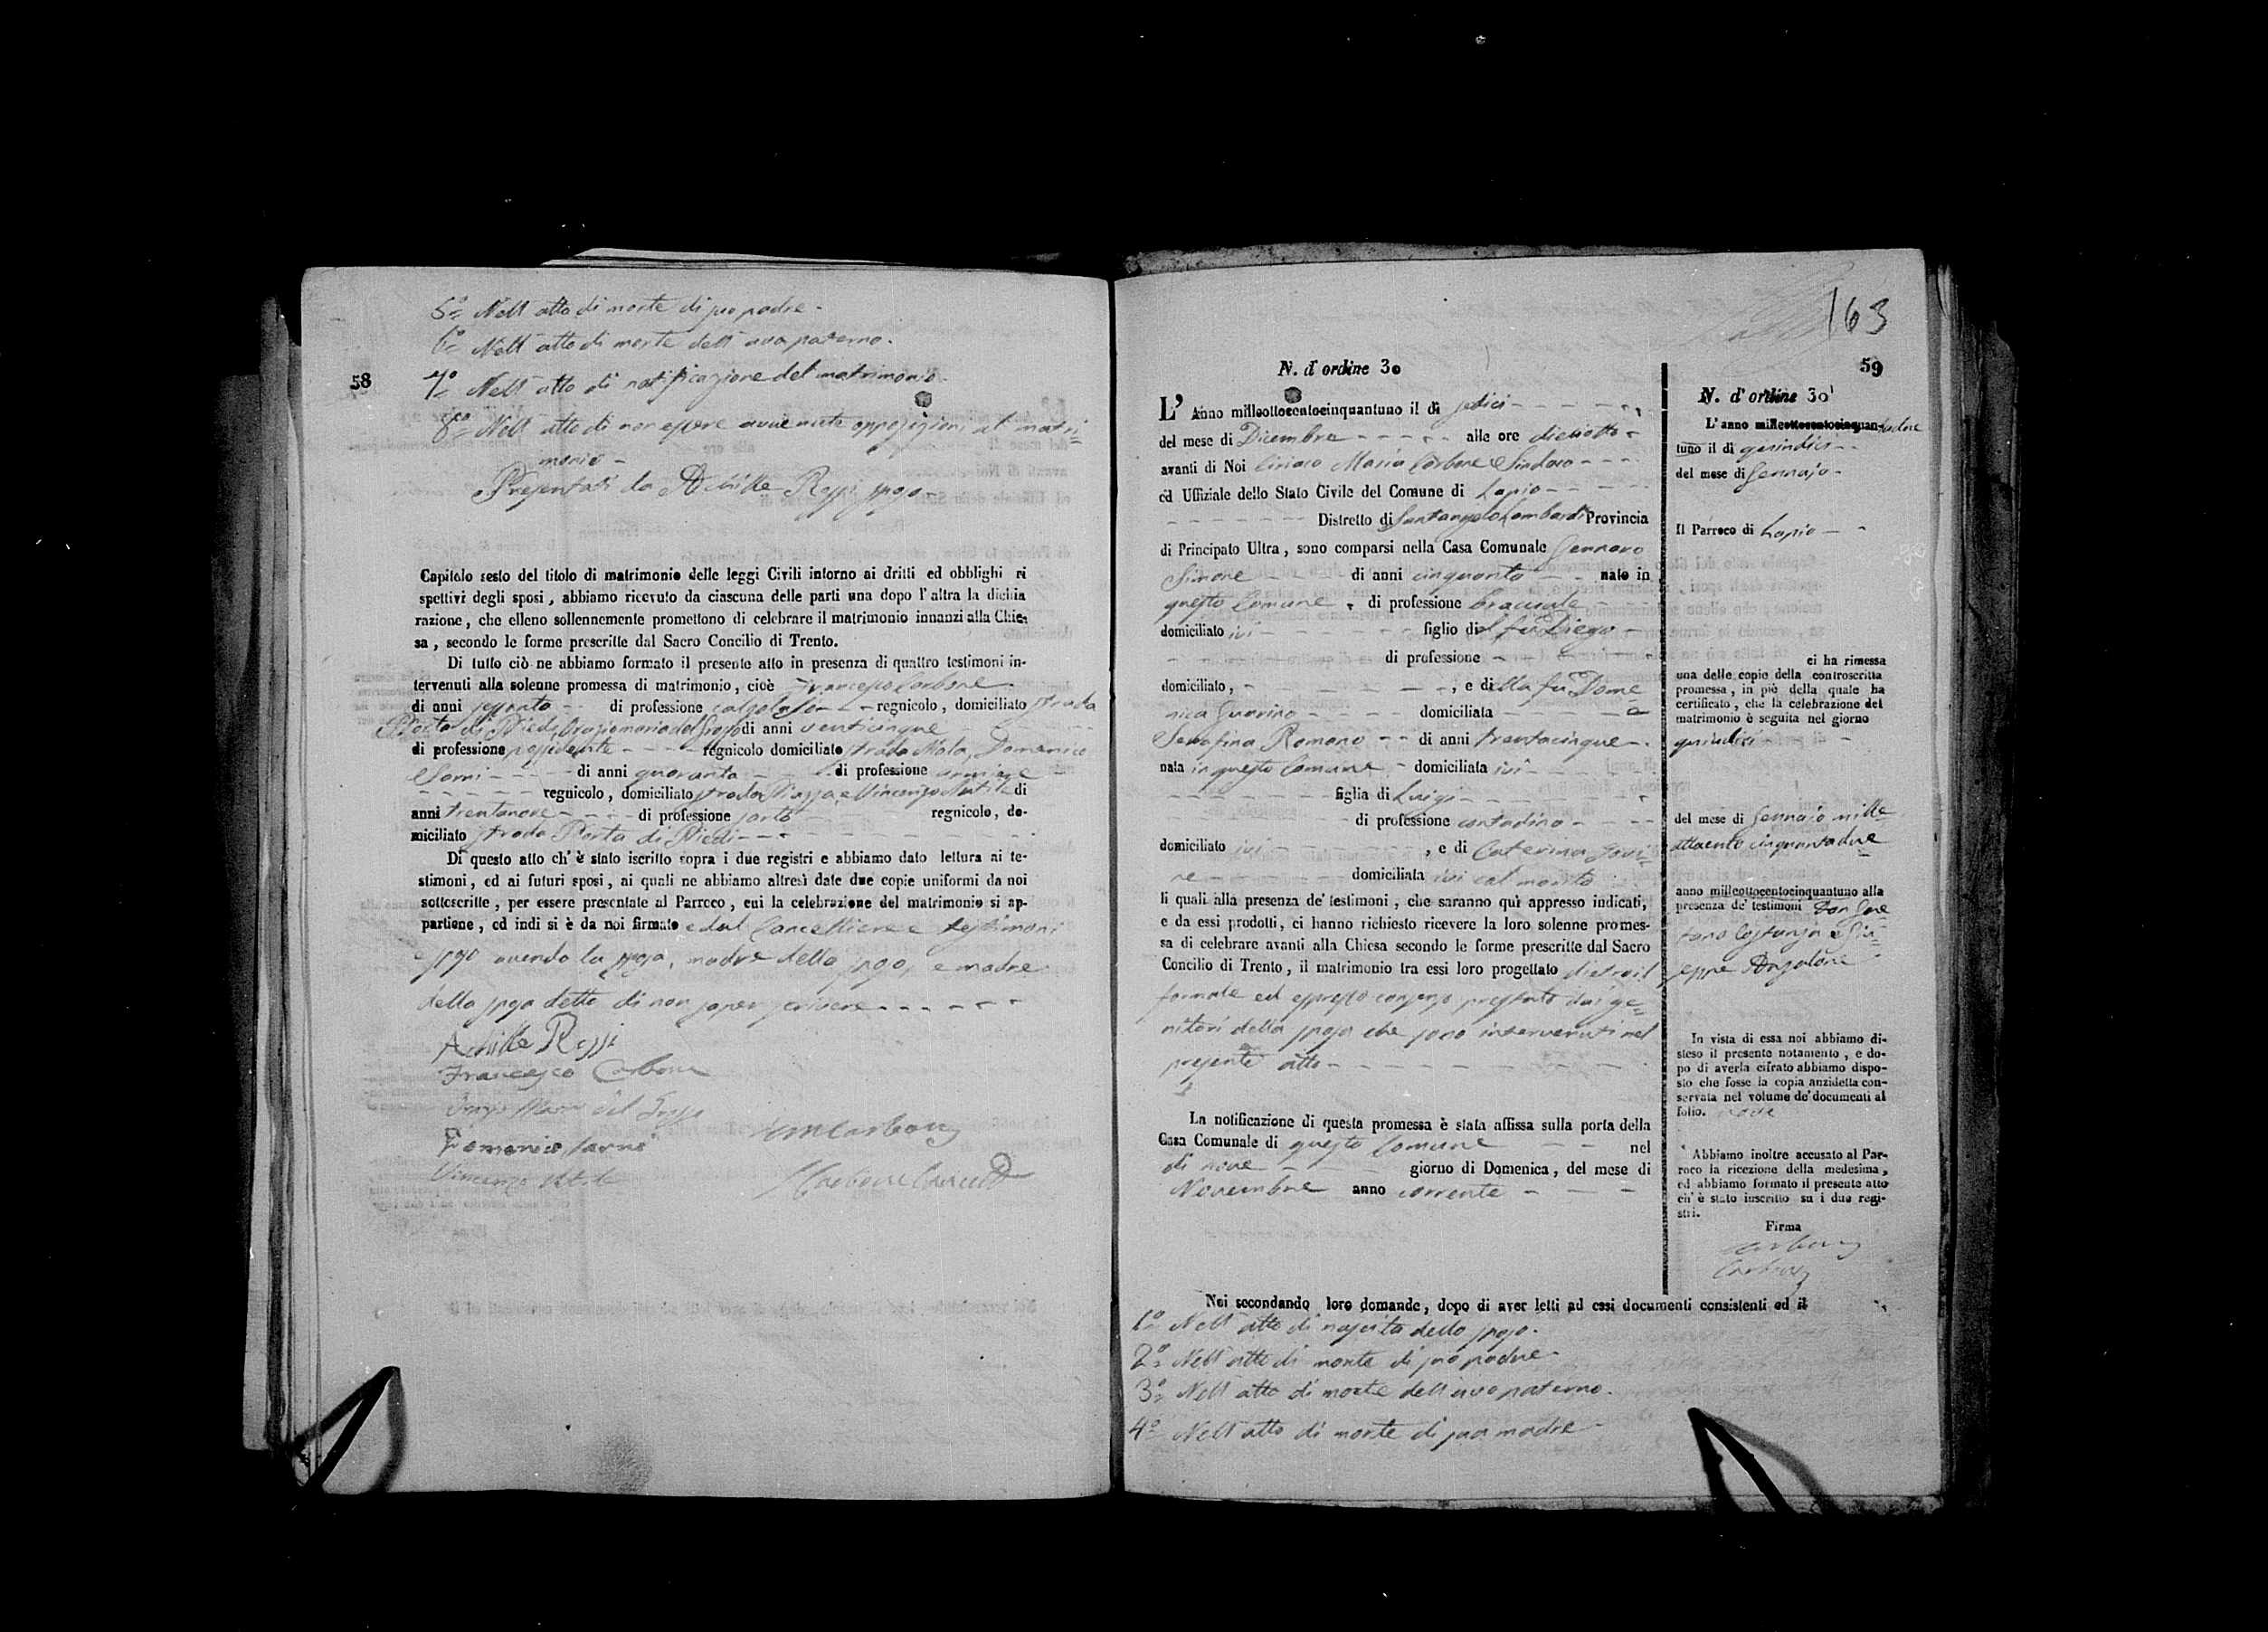 5º Nell'atto di morte di suo padre.
6º Nell'atto di morte dell'avo paterno.
58
7º Nell'atto di notificazione del matrimonio.
8º Nell'atto di non essere avvenute opposizioni al matri=
monio
Presentati da Achille Rossi sposo
Capitolo sesto del titolo di matrimonio delle leggi Civili intorno ai dritti ed obblighi ri
spettivi degli sposi, abbiamo ricevuto da ciascuna delle parti una dopo l'altra la dichia
razione, che elleno sollennemente promettono di celebrare il matrimonio innanzi alla Chie-
sa, secondo le forme prescritte dal Sacro Concilio di Trento.
Di tutto ciò ne abbiamo formato il presente atto in presenza di quattro testimoni in-
tervenuti alla solenne promessa di matrimonio, cioè Francesco Carbone
di anni sessanta di professione calzolajo regnicolo, domiciliato strada
Porta di Piedi, Oraziomaria del Grosso di anni venticinque
di professione possidente regnicolo domiciliato strada Domenico
Sarni di anni quaranta di professione
regnicolo, domiciliato strada Piazza, e Vincenzo di
anni trentanove di professione sarto regnicolo, do-
miciliato strada Porta di Piedi
Di questo atto ch'è stato iscritto sopra i due registri e abbiamo dato lettura ai te-
stimoni, ed ai futuri sposi, ai quali ne abbiamo altresì date due copie uniformi da noi
sottoscritte, per essere presentate al Parroco, cui la celebrazione del matrimonio si ap-
partiene, ed indi si è da noi firmato e dal Cancelliere e testimoni
e sposo avendo la sposa, madre dello sposo, e madre
della sposa detto di non saper scrivere
Achille Rossi
Francesco Carbone
del Grosso
Domenico Sarni
Vincenzo
Carbone
Carbone
163
59
N. d'ordine 30
L'Anno milleottocentocinquantuno il di sedici
del mese di Dicembre alle ore dieciotto
avanti di Noi Ciriaco Maria Carbone Sindaco
ed Uffiziale dello Stato Civile del Comune di Lapio
Distretto di Santangelo Lombardi Provincia
di Principato Ultra, sono comparsi nella Casa Comunale Gennaro
Simone di anni cinquanta nato in
questo Comune, di professione bracciale
domiciliato ivi figlio del fu Diego
di professione
domiciliato, , e di della fu Dome
nica Guarino domiciliata e
Serafina Romano di anni trentacinque
nata in questo Comune domiciliata ivi
figlia di Luigi
di professione contadino
domiciliato ivi , e di Caterina
domiciliata ivi col marito
li quali alla presenza de' testimoni, che saranno quì appresso indicati,
e da essi prodotti, ci hanno richiesto ricevere la loro solenne promes-
sa di celebrare avanti alla Chiesa secondo le forme prescritte dal Sacro
Concilio di Trento, il matrimonio tra essi loro progettato dietro il
formale ed espresso consenso prestato dai ge=
nitori della sposa che sono intervenuti nel
presente atto
La notificazione di questa promessa è stata affissa sulla porta della
Casa Comunale di questo Comune nel
di nove giorno di Domenica, del mese di
Novembre anno corrente
Noi secondando loro domande, dopo di aver letti ad essi documenti consistenti ed il
1º Nell'atto di nascita dello sposo.
2º Nell'atto di morte di suo padre.
3º Nell'atto di morte dell'avo paterno.
4º Nell'atto di morte di sua madre
N. d'ordine 30
L'anno milleottocentocinquan-tadue
tuno il di quindici
del mese di Gennajo
Il Parroco di Lapio
ci ha rimessa
una delle copie della controscritta
promessa, in piè della quale ha
certificato, che la celebrazione del
matrimonio è seguita nel giorno
quindici
del mese di Gennajo mille
ottocento cinquantadue
anno milleottocentocinquantuno alla
presenza de' testimoni Don Gae
tano Costanza e Giu=
seppe Anzalone
In vista di essa noi abbiamo di-
steso il presente notamento, e do-
po di averla cifrato abbiamo dispo-
sto che fosse la copia anzidetta con-
servata nel volume de' documenti al
folio.
Abbiamo inoltre accusato al Par-
roco la ricezione della medesima,
ed abbiamo formato il presente atto
ch'è stato inscritto su i due regi-
stri.
Firma
Carbone
Carbone